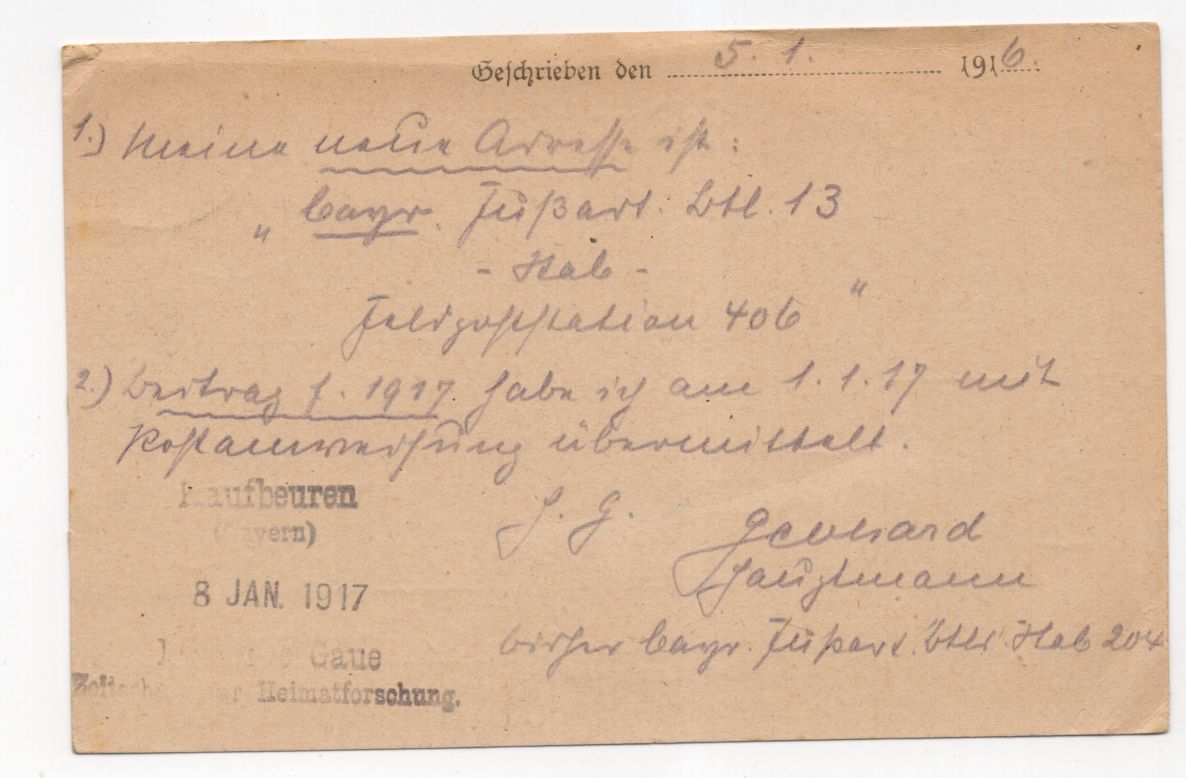 Geschrieben den 5. 1. 1916.
1.) Meine neue Adresse ist:
„ bayr. Fußart. Btl. 13
- Stab -
Feldpoststation 406 "
2.) Beitrag f. 1917 habe ich am 1.1.17 mit
Postanweisung übermittelt.
H. G.
Hauptmann
bisher bayr. Fußart. Btls Stab 204
Kaufbeuren
(Bayern)
8 JAN. 1917
Gaue
Heimatforschung.